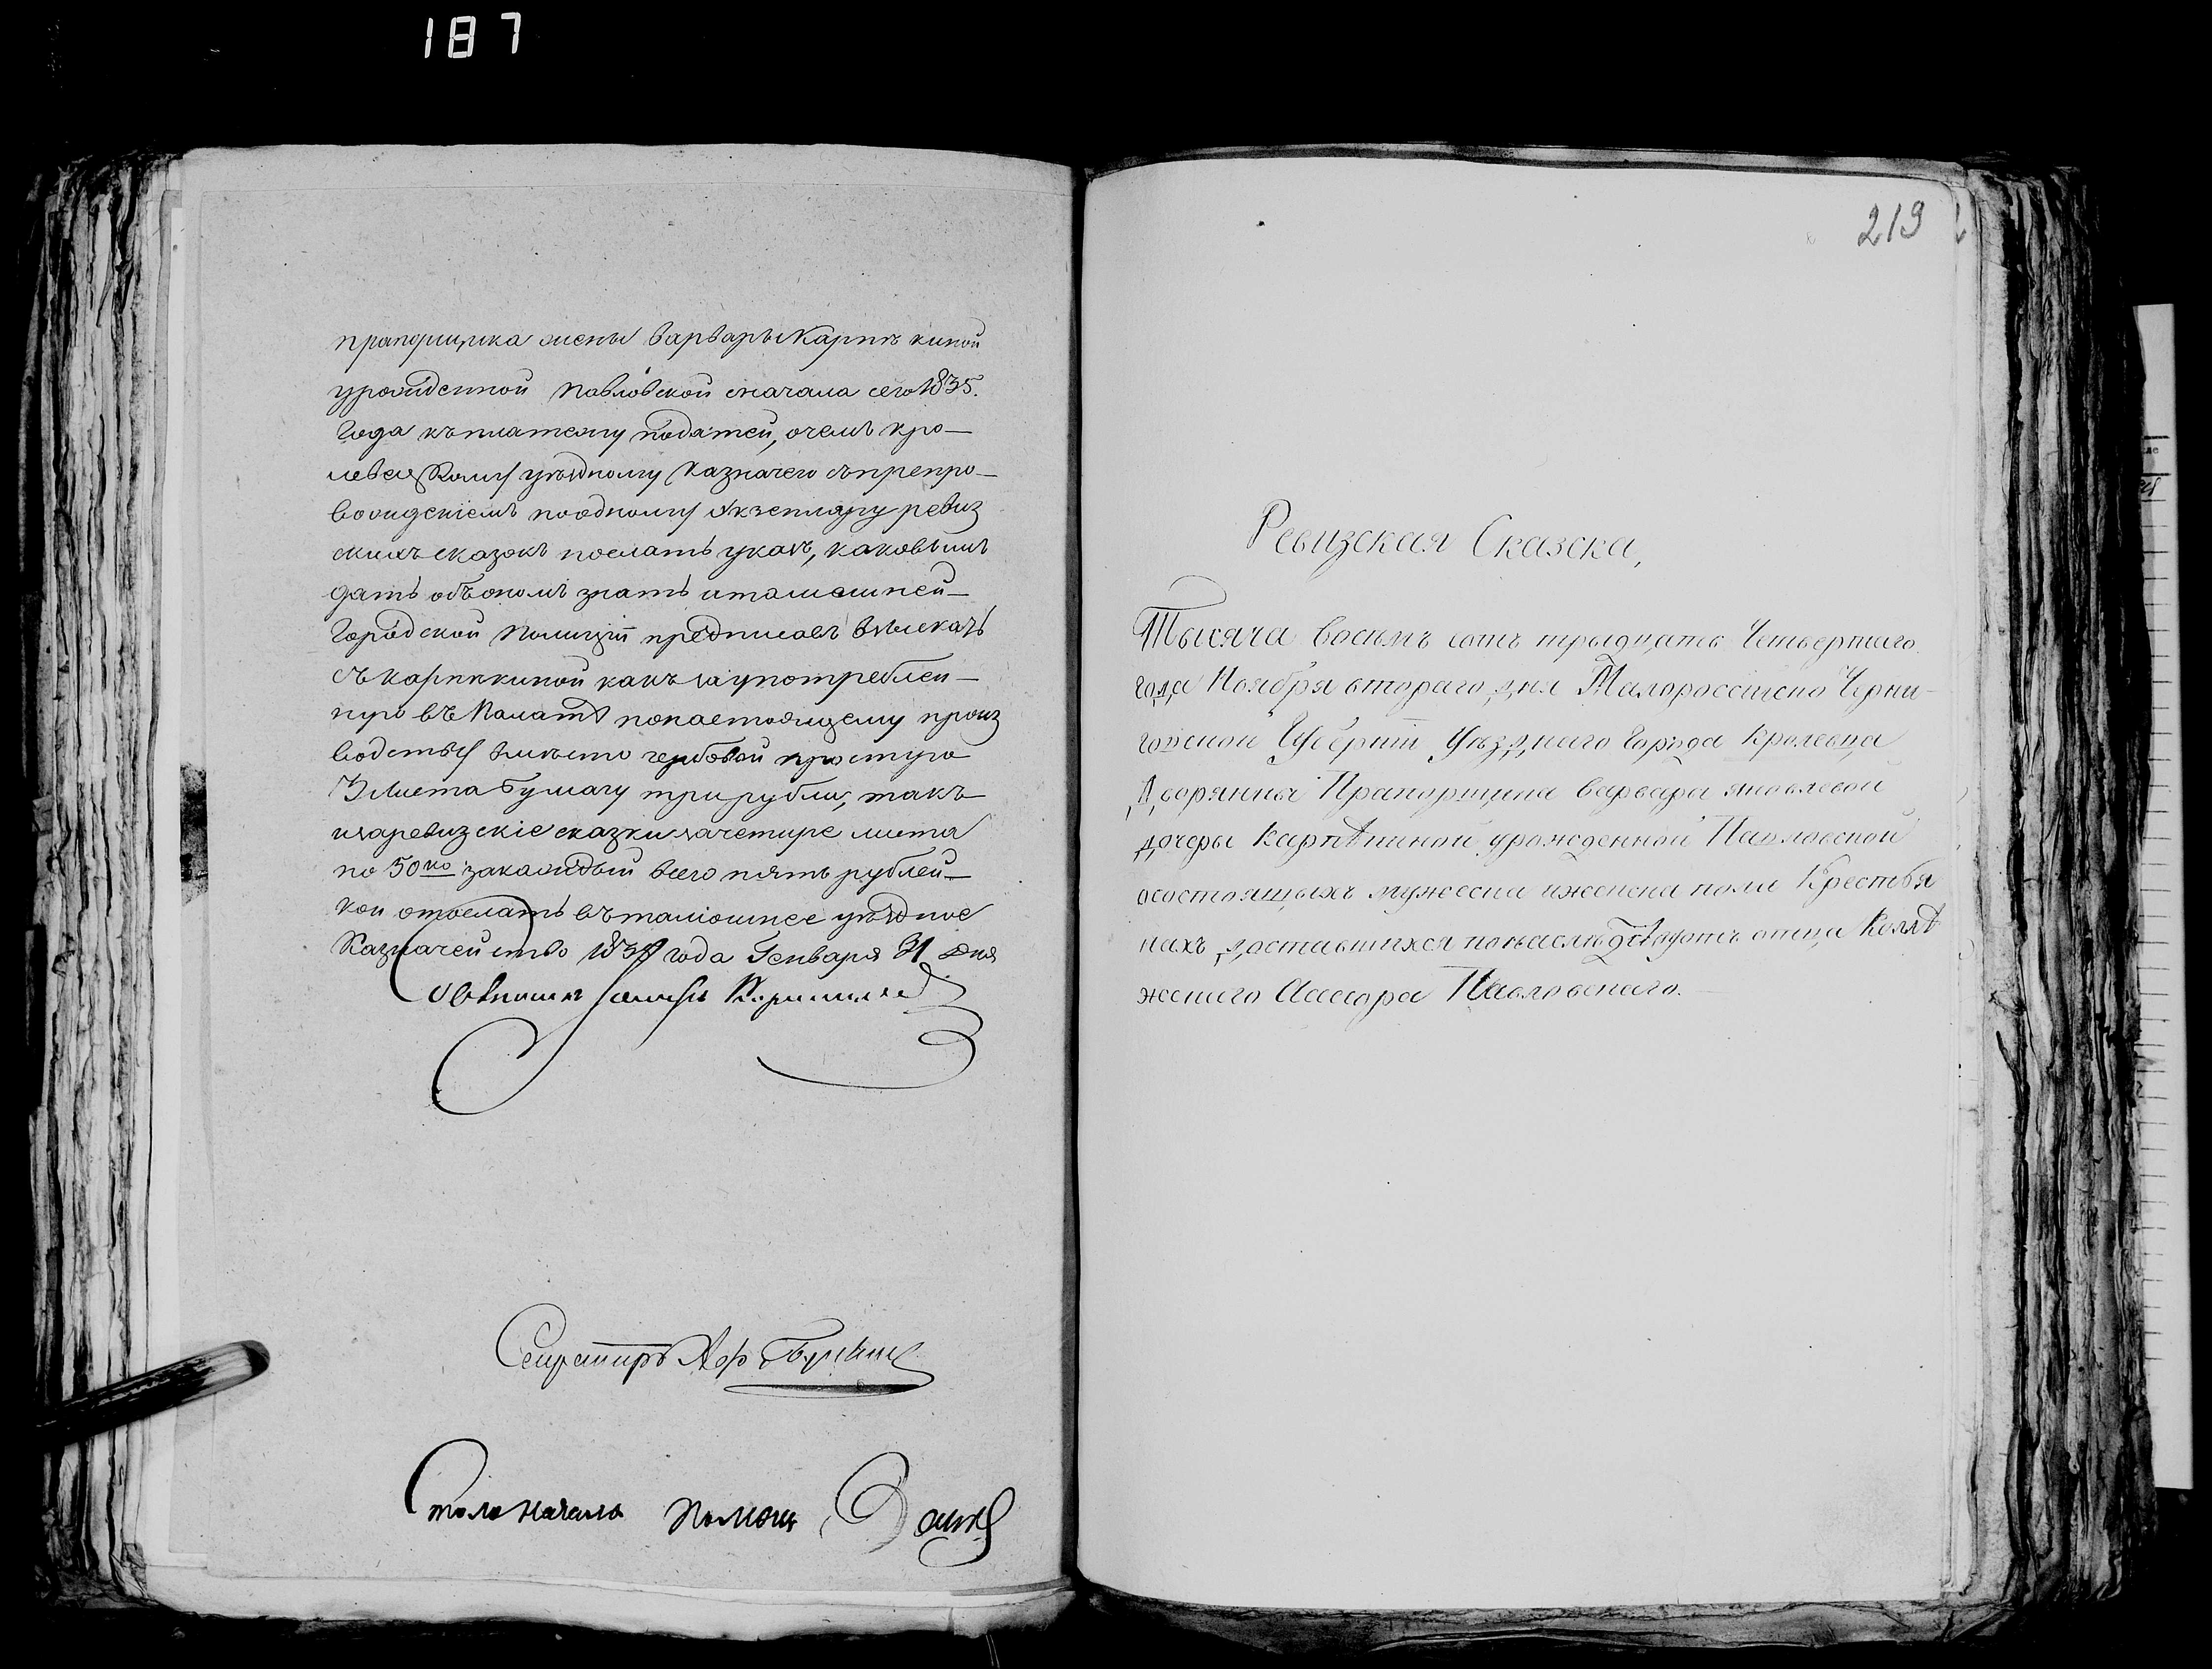 187
прапорщика жены Варвары Карпѣкиной
урожденной Павловской сначала сего 1835.
Года къ платежу податей, о чемъ Кро-
левецкому уѣздному Казначею съ препро-
вожденіемъ по одному Экземпляру ревиз
скихъ сказокъ послать указъ, каковымъ
дать объ ономъ знать и тамошней
Городской Полиціи предписавъ взыскать
съ Карпѣкиной какъ за употреблен-
ную въ Палатѣ по настоящему произ
водству вмѣсто гербовой простую
3 листа бумагу три рубли, такъ
и за ревизскіе сказки за четыре листа
по 50 ко за каждый всего пять рублей
кои отослать въ тамошнее уѣздное
Казначейство 1835 года Генваря 31 дня
Совѣтникъ
Секретарь
Столоначаль Помощ
219
Ревизская Сказска,
Тысяча восѣмъ сотъ трыдцать Четвертаго
года Ноября втораго дня Малороссійско Черни-
говской Губерніи Уѣзднаго Города Кролевца
Дворянки Прапорщица Варвара Яковлевой
дочеры Карпѣкиной урожденной Павловской
о состоящыхъ мужеска и женска пола Крестья
нахъ доставшихся по наслѣдству отъ отца Колле
жскаго Ассесора Павловскаго.